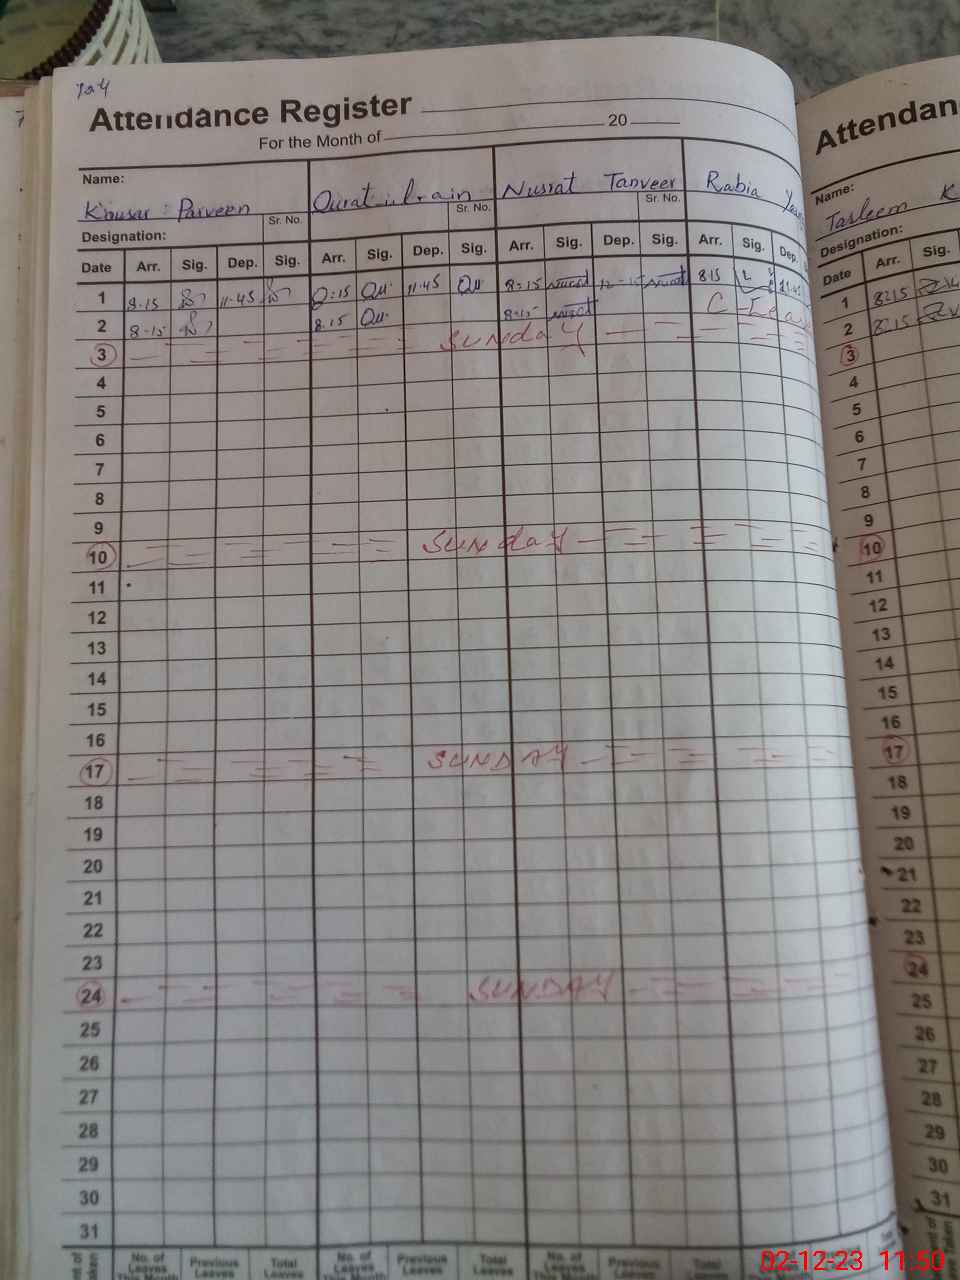 Attendance Register
For the Month of 20
Name:
Kousar Parveen
Qurat ul ain
Nusrat Tanveer
Rabia
Sr. No. Sr. No. Sr. No.
Designation:
Date Arr. Sig. Dep. Sig. Arr. Sig. Dep. Sig. Arr. Sig. Dep. Sig. Arr. Sig. Dep.
1 8-15 11-45 8:15 Qu 11-45 Qu 8:15 Nusrat Nusrat 8 15
2 8-15 8.15 Qu 8:15 Nusrat C-Leave
3 SUNday
4
5
6
7
8
9
10 SUNday
11
12
13
14
15
16
17 SUNDAY
18
19
20
21
22
23
24 SUNDAY
25
26
27
28
29
30
31
No. of Leaves This Month Previous Leaves Total Leaves No. of Leaves This Month Previous Leaves Total Leaves No. of Leaves This Month Previous Leaves Total Leaves
Attendan
Name:
Tasleem K
Designation:
Date Arr. Sig.
1 8:15
2 8:15
3
4
5
6
7
8
9
10
11
12
13
14
15
16
17
18
19
20
21
22
23
24
25
26
27
28
29
30
31
02-12-23 11:50